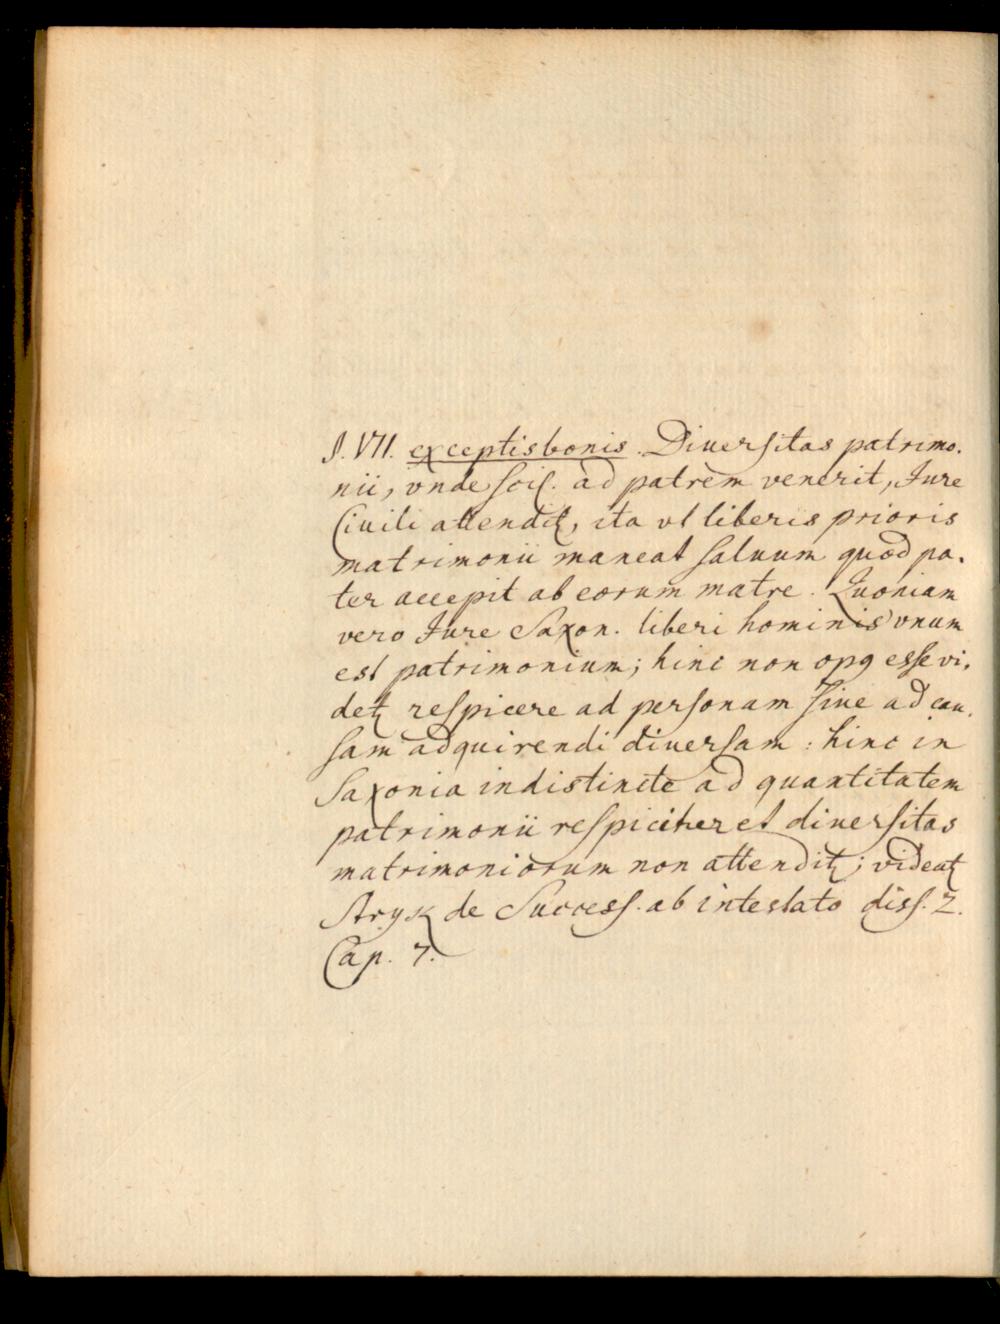 §. VII. exceptis bonis. Diversitas patrimo-
nii, vnde scil. ad patrem venerit, Jure
Civili attenditꝫ, ita vt liberis prioris
matrimonii maneat salvum quod pa-
ter accepit ab eorum matre. Quoniam
vero Jure Saxon. liberi hominis vnum
est patrimonium; hinc non opꝫ esse vi-
detꝫ respicere ad personam sive ad cau-
sam adquirendi diversam: hinc in
Saxonia indistincte ad quantitatem
patrimonii respiciter et diversitas
matrimoniorum non attenditꝫ; videatꝫ
Stryk de Success. ab intestato diss. 2.
Cap. 7.